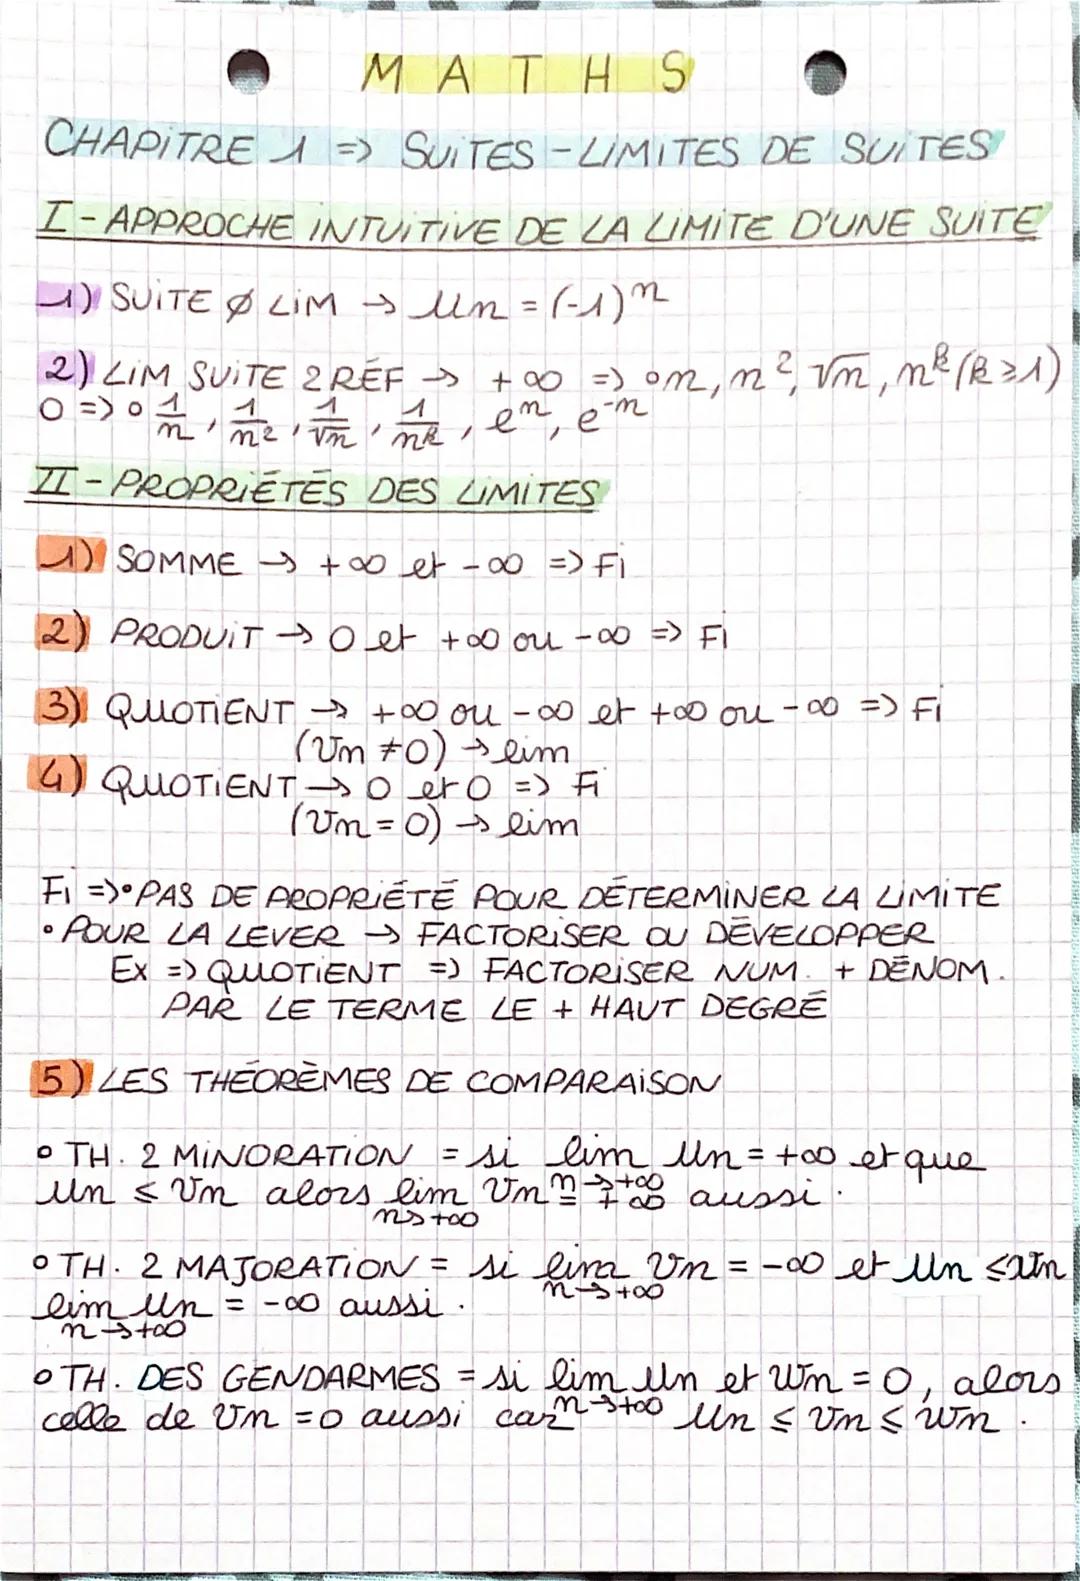 MATHS
CHAPITRE 1 => SUITES - LIMITES DE SUITES
I - APPROCHE INTUITIVE DE LA LIMITE D'UNE SUITE
1) SUITE Ø LIM → Un = (-1)^n
2) LIM SUITE 2 RÉF → +∞ => ∘ n, n², √n, n^k (k ≥ 1)
0 => ∘ 1/n, 1/n², 1/√n, 1/n^k, e^n, e^-n
II - PROPRIÉTÉS DES LIMITES
1) SOMME → +∞ et -∞ => Fi
2) PRODUIT → 0 et +∞ ou -∞ => Fi
3) QUOTIENT → +∞ ou -∞ et +∞ ou -∞ => Fi
(Vn ≠ 0) → lim
4) QUOTIENT → 0 et 0 => Fi
(Vn = 0) → lim
Fi => • PAS DE PROPRIÉTÉ POUR DÉTERMINER LA LIMITE
• POUR LA LEVER → FACTORISER OU DÉVELOPPER
Ex => QUOTIENT => FACTORISER NUM. + DÉNOM.
PAR LE TERME LE + HAUT DEGRÉ
5) LES THÉORÈMES DE COMPARAISON
∘ TH. 2 MINORATION = si lim Un = +∞ et que
n→+∞
Un ≤ Vn alors lim Vn = +∞ aussi.
n→+∞
∘ TH. 2 MAJORATION = si lim Vn = -∞ et Un ≤ Vn
n→+∞
lim Un = -∞ aussi.
n→+∞
∘ TH. DES GENDARMES = si lim Un et Wn = 0, alors
n→+∞
celle de Vn = 0 aussi car Un ≤ Vn ≤ Wn.